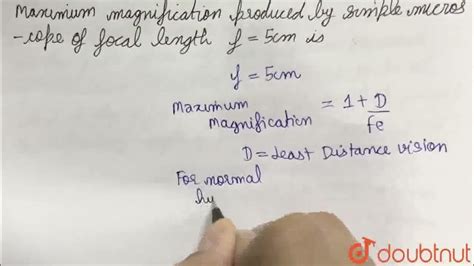 Maximum magnification produced by simple micros
-cope of focal length f = 5cm is
f = 5cm
Maximum Magnification = 1 + D/fe
D = Least Distance vision
For normal
hu
doubtnut